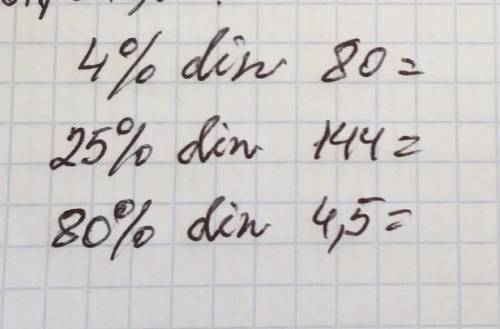 4% din 80=
25% din 144=
80% din 4,5=